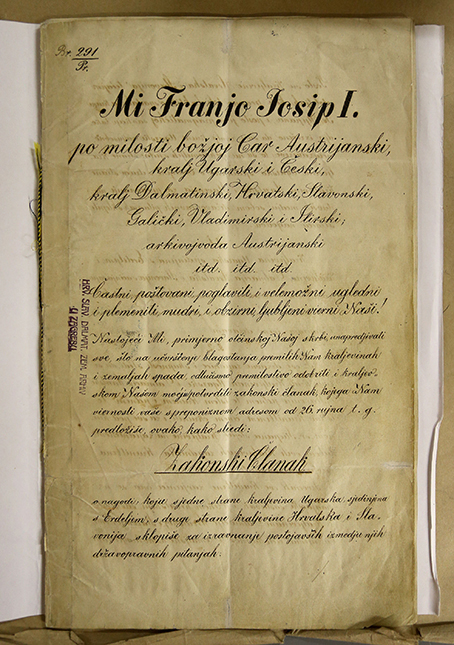 Br. 291
Pr.
Mi Franjo Iosip I.
po milosti božjoj Car Austrijanski,
kralj Ugarski i Česki,
kralj Dalmatinski, Hrvatski, Slavonski,
Galički, Vladimirski i Ilirski;
arkivojvoda Austrijanski
itd. itd. itd.
Častni, poštovani, poglaviti i velemožni, ugledni
i plemeniti, mudri, i obzirni, ljubljeni vierni Naši!
Nastojeći Mi, primjerno otčinskoj Našoj skrbi, unapredjivati
sve što na učvršćenje blagostanja premilih Nam kraljevinah
i zemaljah spada, odlučismo premilostivo odobriti i kraljev-
skom Našom moćju potvrditi zakonski članak, kojega Nam
viernosti vaše s preponiznom adresom od 26 rujna t. g.
predložiše, ovako kako sliedi:
Zakonski Članak
o nagodi, koju s jedne strane kraljevina Ugarska, sjedinjena
s Erdeljem, s druge strane kraljevine Hrvatska i Sla-
vonija sklopiše za izravnanje postojavših izmedju njih
državopravnih pitanjah.
HRV. SLAV. DALMAT. ZEM. ARKIV
U ZAGREBU